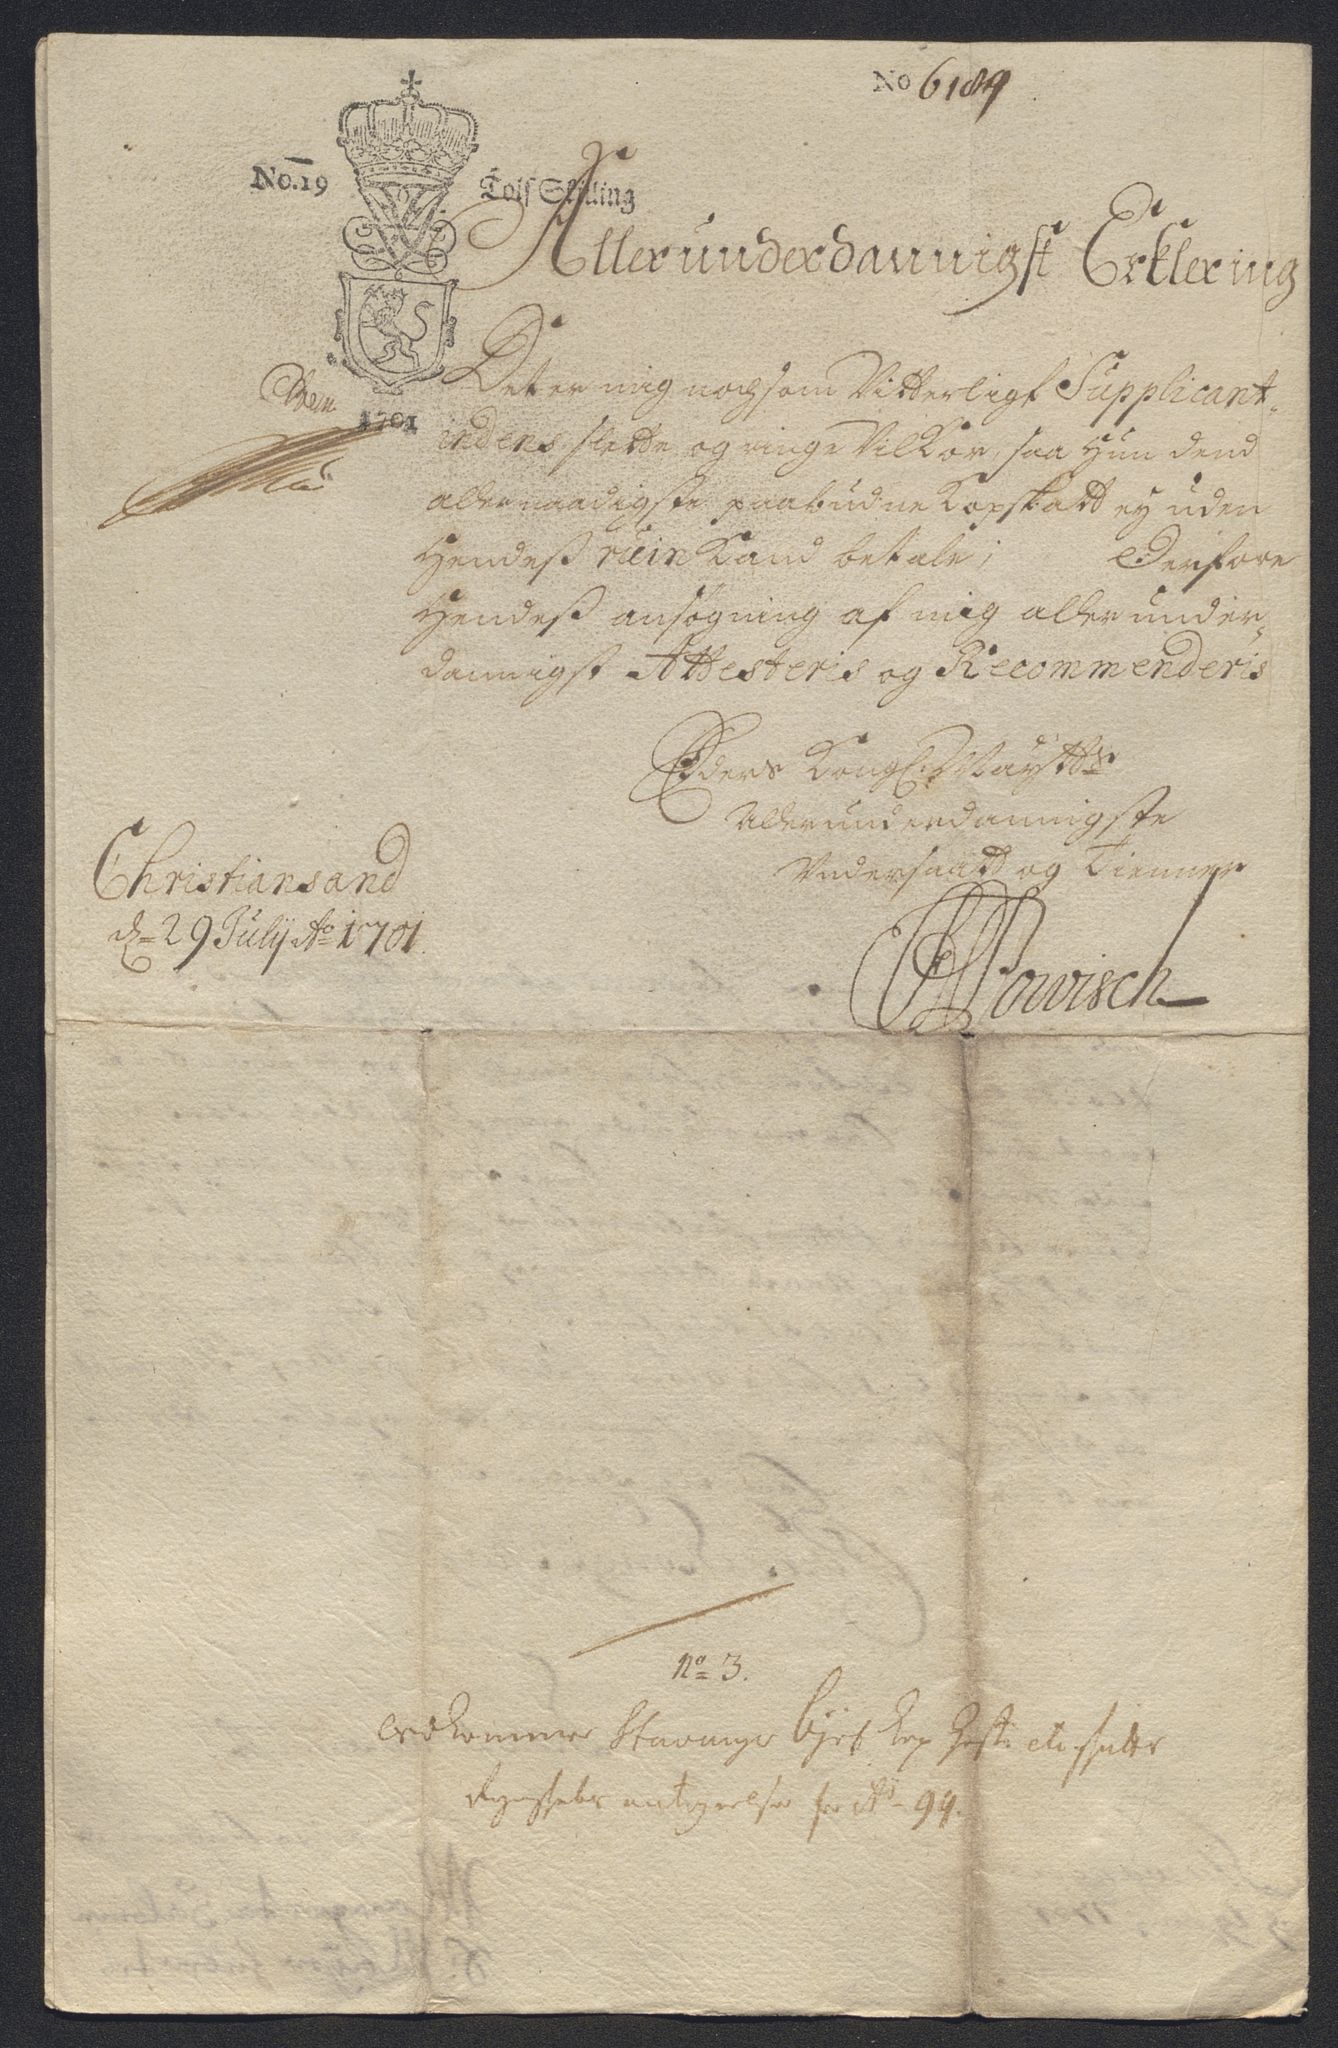 No 6189
No. 19 Tolf Skilling
1701
Allerunderdannigst Erklering
Det er mig nochsom Vitterligt Supplicant-
indens slette og ringe Vilkor, saa Hun dend
allernaadigste paabudne Kopskatt ey uden
Hendeß ruin kand betale; Derfore
Hendeß ansøgning af mig allerunder-
dannigst Attesteris og Recommenderis
Eders Kongl: Mayttß
Allerunderdannigste
Undersaatt og Tienner
Powisch
Christiansand
d= 29 Julij Ao 1701.
No= 3.
vedkommer Stavanger Byes Kop
antegnelse for Ao- 99.